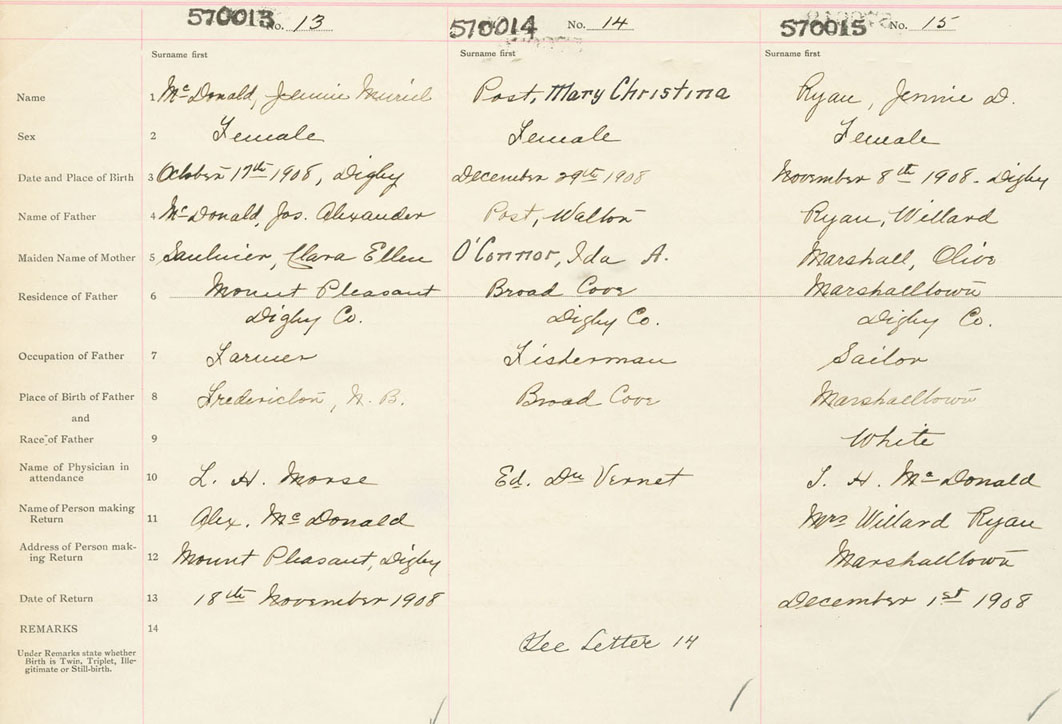 570013 No. 13 570014 No. 14 570015 No. 15
Surname first Surname first Surname first
Name 1 McDonald, Jennie Muriel Post, Mary Christina Ryan, Jennie D.
Sex 2 Female Female Female
Date and Place of Birth 3 October 17th 1908, Digby December 29th 1908 November 8th 1908 - Digby
Name of Father 4 McDonald, Jos. Alexander Post, Walton Ryan, Willard
Maiden Name of Mother 5 Saulnier, Clara Ellen O'Connor, Ida A. Marshall, Olive
Residence of Father 6 Mount Pleasant Broad Cove Marshalltown
Digby Co. Digby Co. Digby Co.
Occupation of Father 7 Farmer Fisherman Sailor
Place of Birth of Father 8 Fredericton, N. B. Broad Cove Marshalltown
and
Race of Father 9 White
Name of Physician in
attendance 10 L. H. Morse Ed. Du Vernet J. H. McDonald
Name of Person making
Return 11 Alex. McDonald Mrs Willard Ryan
Address of Person mak-
ing Return 12 Mount Pleasant, Digby Marshalltown
Date of Return 13 18th November 1908 December 1st 1908
REMARKS 14
See Letter 14
Under Remarks state whether
Birth is Twin, Triplet, Ille-
gitimate or Still-birth.